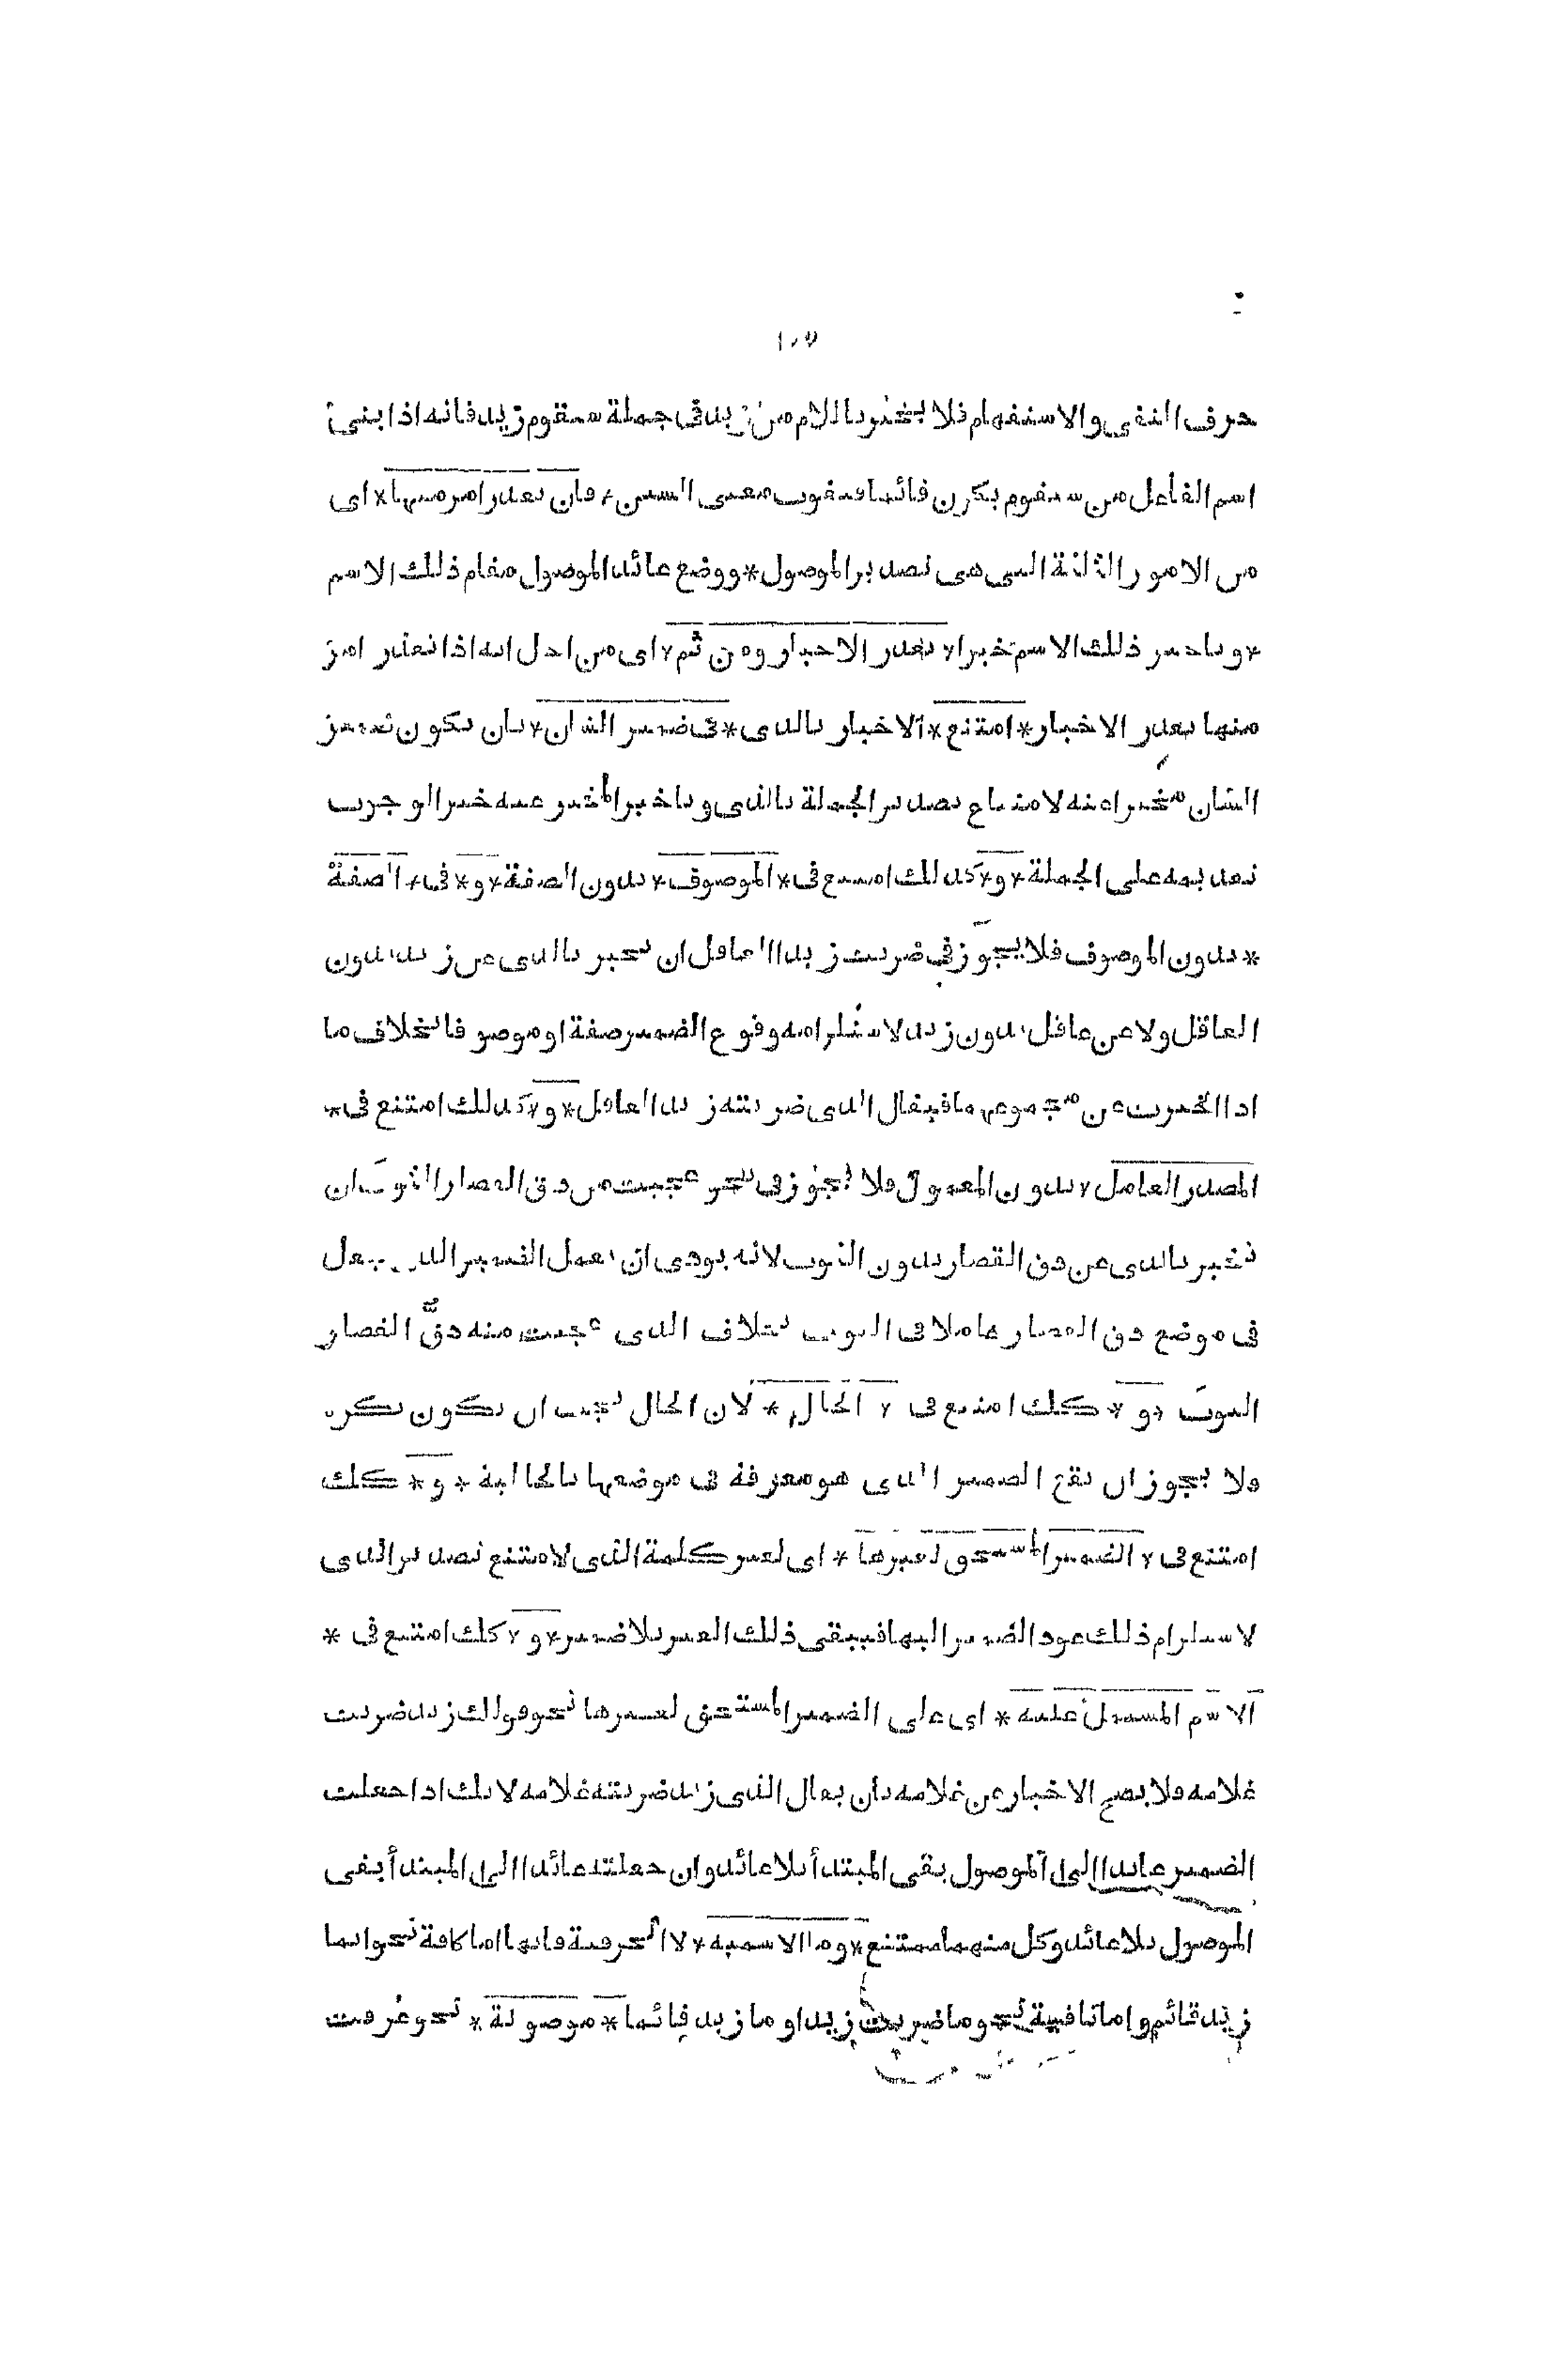 ١٠٥
حرف النفى والاستفهام فلا يخبر باللام من زيد فى جملة سيقوم زيد فانه اذا بنى
اسم الفاعل من سيقوم يكون قائما فيفوت معنى السين * فان تعذر امر منها * اى
من الامور الثلثة التى هى تصدير الموصول * ووضع عائد الموصول مقام ذلك الاسم
* وتاخير ذلك الاسم خبرا * تعذر الاخبار ومن ثم * اى من اجل انه اذا تعذر امر
منها تعذر الاخبار * امتنع * الاخبار بالذى * فى ضمير الشان * بان يكون ضمير
الشان مخبرا عنه لامتناع تصدير الجملة بالذى وتاخير المخبر عنه خبرا لوجوب
تقديمه على الجملة * و * كذلك امتنع فى * الموصوف * بدون الصفة * و * فى * الصفة
* بدون الموصوف فلا يجوز فى ضربت زيدا العاقل ان تخبر بالذى عن زيد بدون
العاقل ولا عن عاقل بدون زيد لاستلزامه وقوع الضمير صفة او موصوفا بخلاف ما
اذا اخبرت عن مجموعهما فيقال الذى ضربته زيد العاقل * و * كذلك امتنع فى *
المصدر العامل * بدون المعمول فلا يجوز فى نحو عجبت من دق القصار الثوب ان
تخبر بالذى عن دق القصار بدون الثوب لانه يودى ان يعمل الضمير الذى يجعل
فى موضع دق القصار عاملا فى الثوب بخلاف الذى عجبت منه دق القصار
الثوب * و * كذلك امتنع فى * الحال * لان الحال يجب ان يكون نكره
ولا يجوز ان يقع الضمير الذى هو معرفة فى موضعها بالحالية * و * كذلك
امتنع فى * الضمير المستحق لغيرها * اى لغير كلمة الذى لامتنع تصدير الذى
لاستلزام ذلك عود الضمير اليها فيبقى ذلك الغير بلا ضمير * و * كذلك امتنع فى *
الاسم المشتمل عليه * اى على الضمير المستحق لغيرها نحو قولك زيد ضربت
غلامه فلا يصح الاخبار عن غلامه بان يقال الذى زيد ضربته غلامه لانك اذا جعلت
الضمير عائدا الى الموصول بقى المبتدأ بلا عائد وان جعلته عائدا الى المبتدأ بقى
الموصول بلا عائد وكل منهما ممتنع * وما الاسمية * لا الحرفية فانها اما كافة نحو انما
زيد قائم واما نافية نحو ما ضربت زيدا وما زيد قائما * موصولة * نحو عرفت